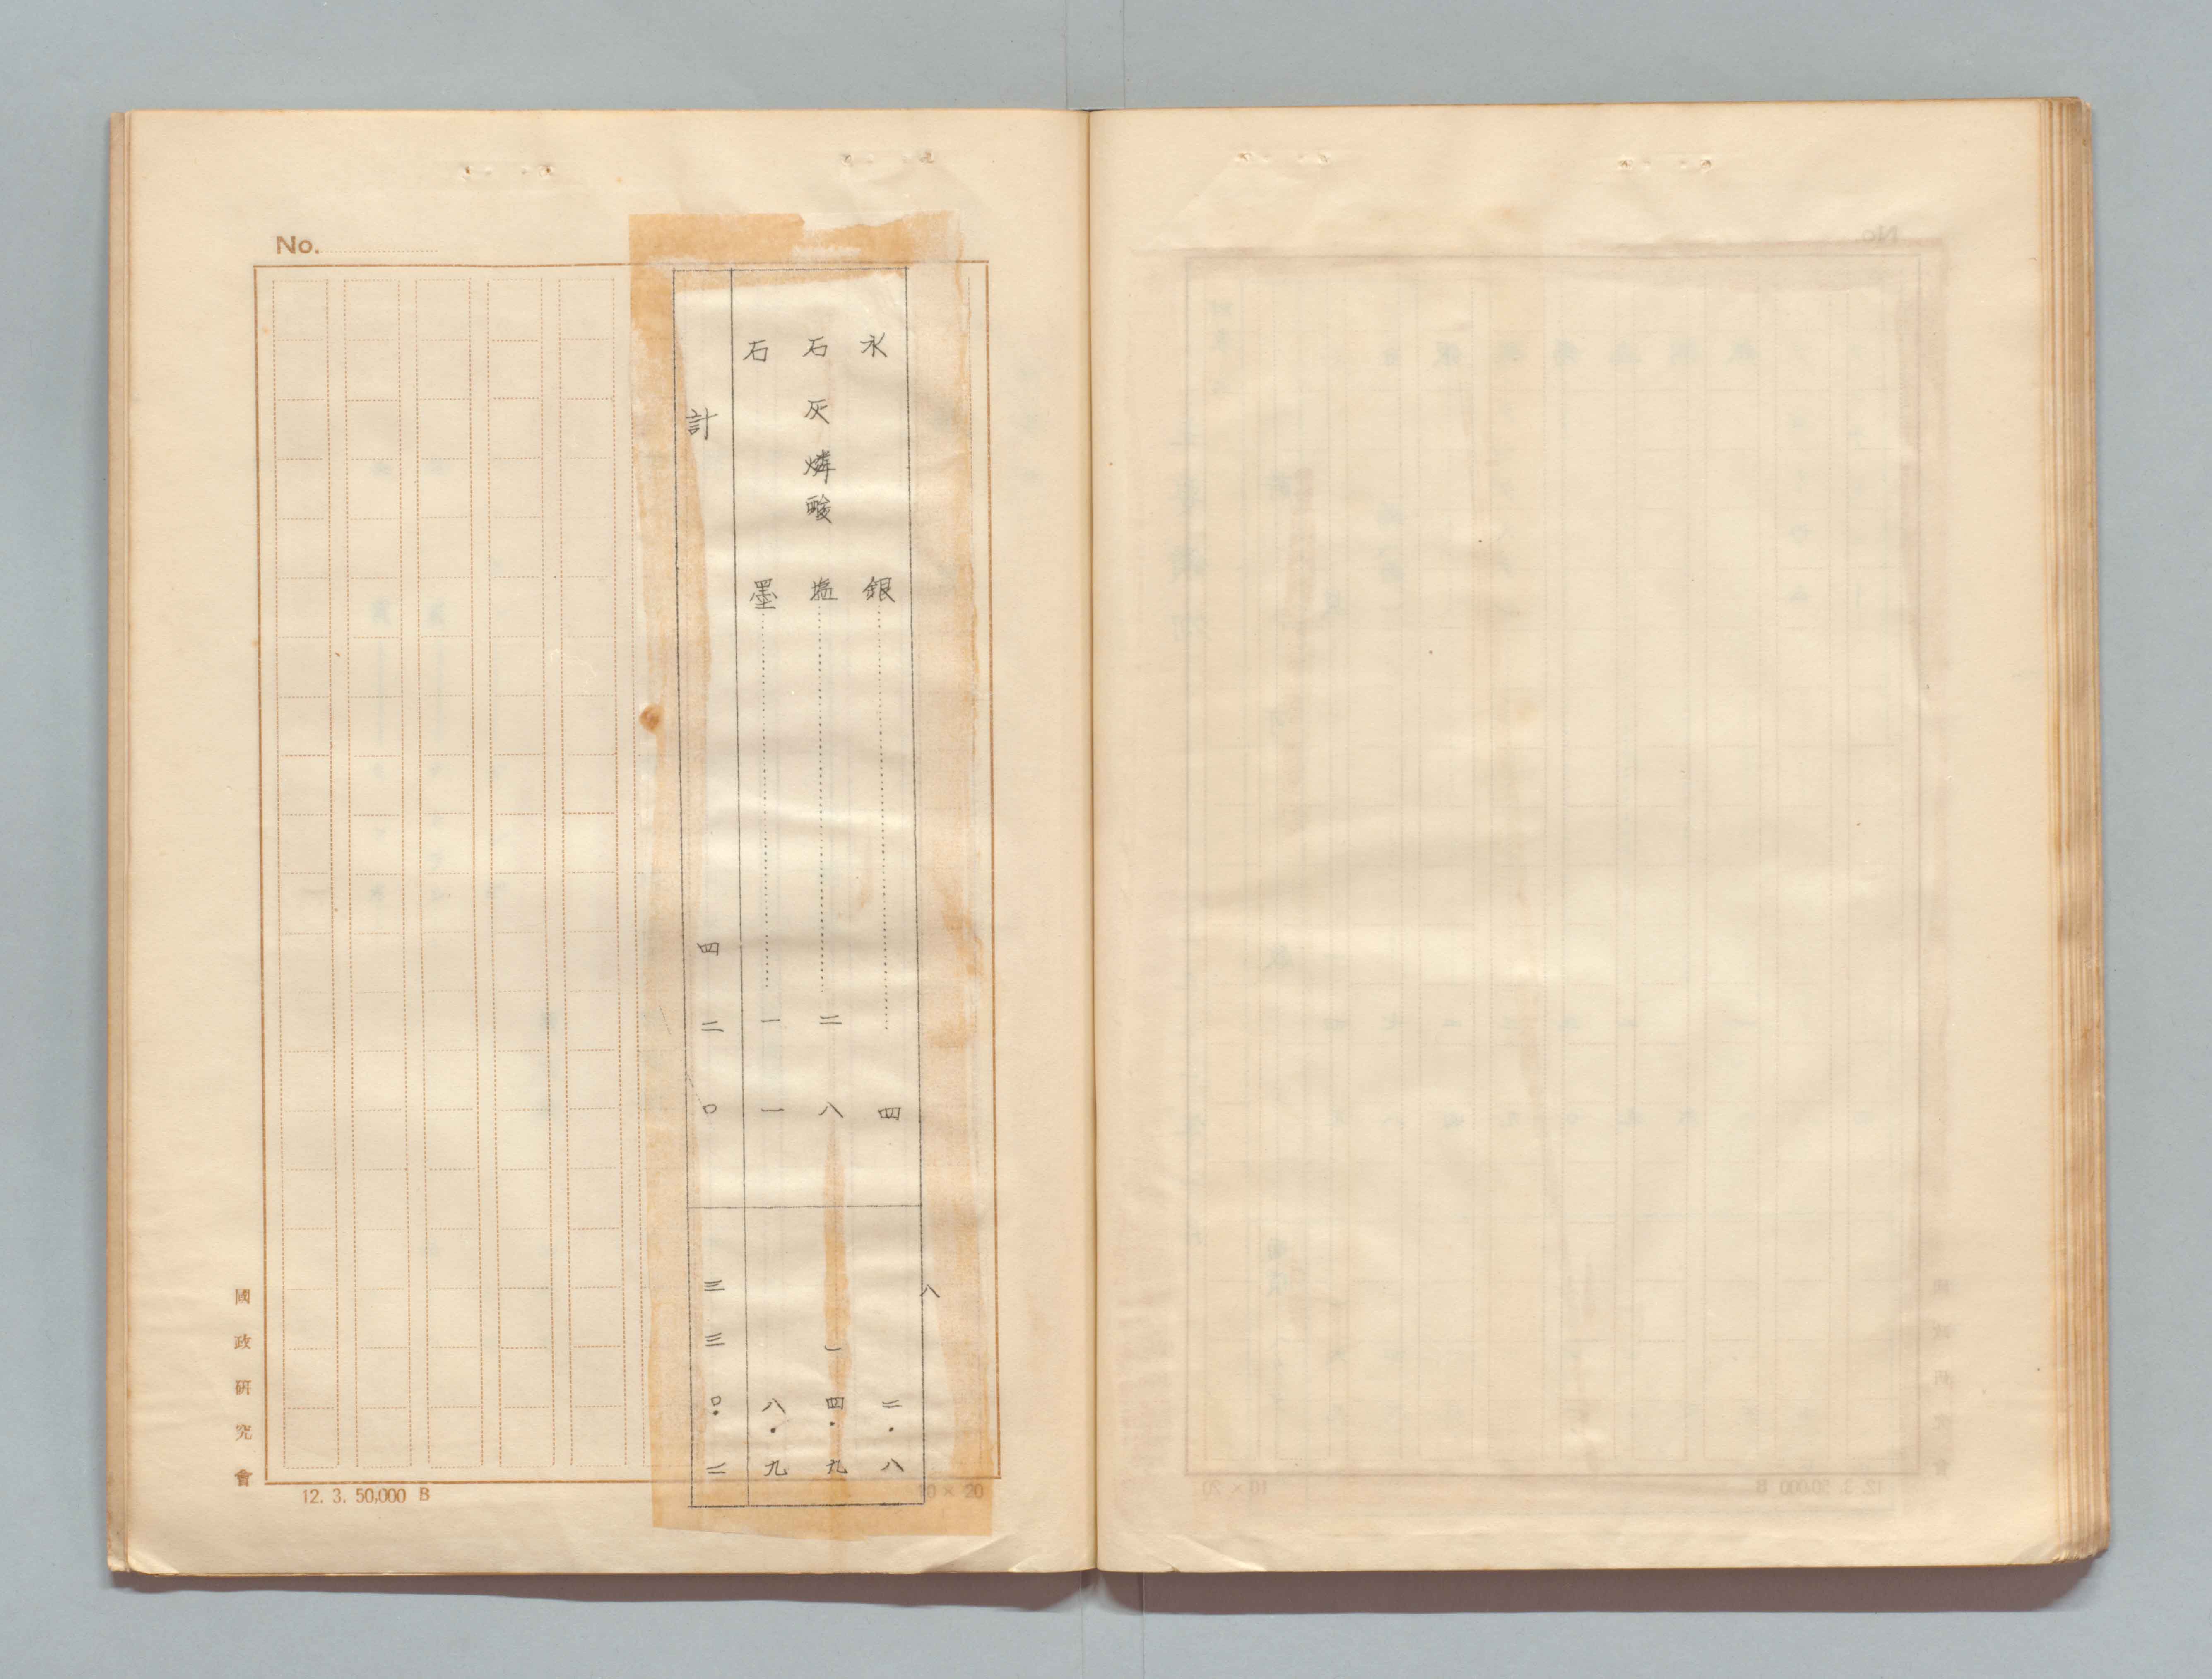 No.
八
水銀……四 二・八
石灰燐酸塩……二八 一四・九
石墨……一一 八・九
計 四二〇 三三〇・二
國政研究會
12. 3. 50,000 B
10 × 20